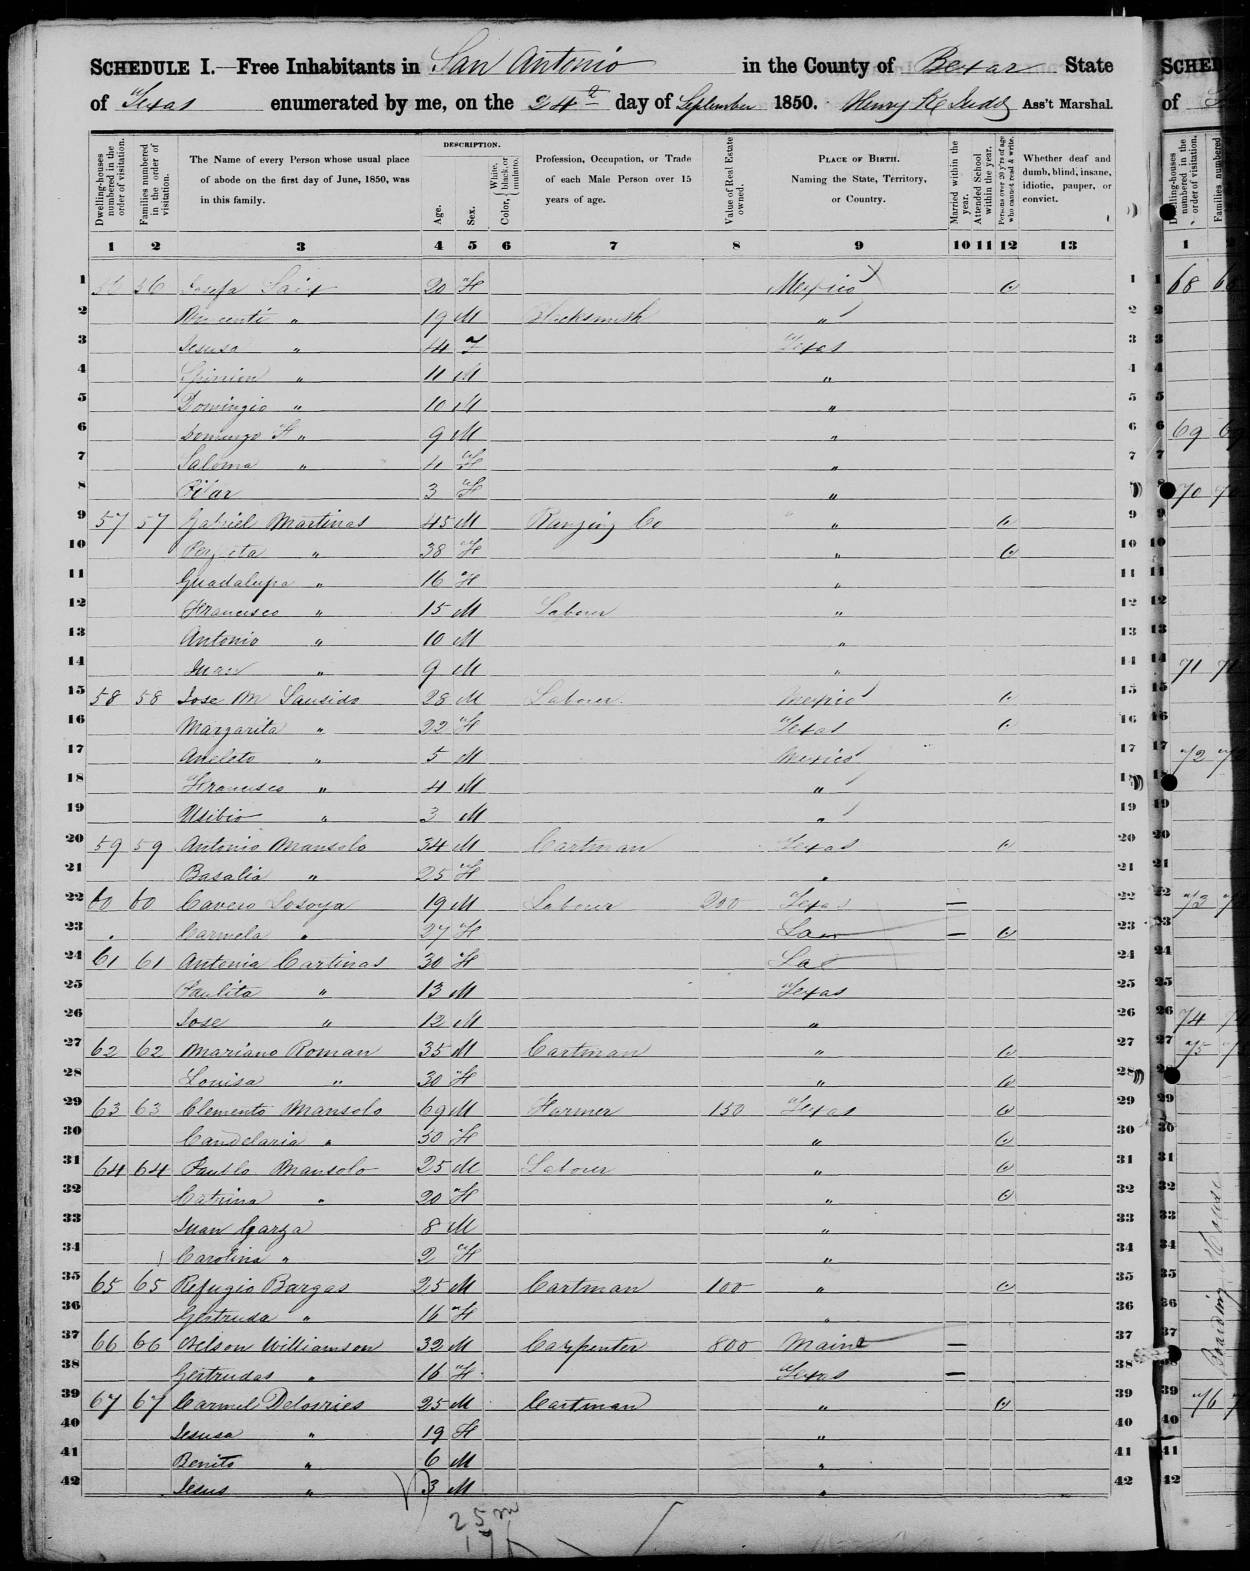 SCHEDULE I.—Free Inhabitants in San Antonio in the County of Bexar State
of Texas enumerated by me, on the 24th day of September 1850. Henry K Judd Ass't Marshal.
Dwelling-houses numbered in the order of visitation.
Families numbered in the order of visitation.
The Name of every Person whose usual place of abode on the first day of June, 1850, was in this family.
DESCRIPTION.
Age.
Sex.
Color, White, black, or mulatto.
Profession, Occupation, or Trade of each Male Person over 15 years of age.
Value of Real Estate owned.
PLACE OF BIRTH. Naming the State, Territory, or Country.
Married within the year.
Attended School within the year.
Persons over 20 y'rs of age who cannot read & write.
Whether deaf and dumb, blind, insane, idiotic, pauper, or convict.
1 2 3 4 5 6 7 8 9 10 11 12 13
1 56 56 Josefa 20 F Mexico 1
2 " 19 M Blacksmith " 2
3 Jesusa " 44 F Texas 3
4 " 11 M " 4
5 Domingio " 10 M " 5
6 Domingo F " 9 M " 6
7 Saloma " 4 F " 7
8 Pilar 3 F " 8
9 57 57 Gabriel Martinas 45 M Ranging Co " 9
10 " 38 F " 10
11 Guadalupa " 16 F " 11
12 Francisco " 15 M Laborer " 12
13 Antonio " 10 M " 13
14 Juan " 9 M " 14
15 58 58 Jose M Sausido 28 M Laborer Mexico 15
16 Margarita " 22 F Texas 16
17 Anoleto " 5 M Mexico 17
18 Francisco " 4 M " 18
19 Usibio " 3 M " 19
20 59 59 Antonio Mansolo 34 M Cartman Texas 20
21 Basalia " 25 F " 21
22 60 60 Cavero Losoya 19 M Laborer 200 Texas — 22
23 Carmela " 27 F La — 23
24 61 61 Antonia Cartinas 30 F La 24
25 Paulita " 13 M Texas 25
26 Jose " 12 M " 26
27 62 62 Mariano Roman 35 M Cartman " 27
28 Louisa " 30 F " 28
29 63 63 Clemento Mansolo 69 M Farmer 150 Texas 29
30 Candelaria " 30 F " 30
31 64 64 Paublo Mansolo 25 M Laborer " 31
32 Catrina " 20 F " 32
33 Juan Garza 8 M " 33
34 Carolina " 2 F " 34
35 65 65 Refugio Bargas 25 M Cartman 100 " 35
36 Gertruda " 16 F " 36
37 66 66 Nelson Williamson 32 M Carpenter 800 Maine — 37
38 Gertrudas " 16 F Texas — 38
39 67 67 Carmel Delosries 25 M Cartman " 39
40 Jesusa " 19 F " 40
41 Benito " 6 M " 41
42 Jesus " 3 M " 42
25 m
17 f
SCHED
of
Dwelling-houses numbered in the order of visitation.
Families numbered
1
68
69
70
71
72
73
74
75
Boarding House
76